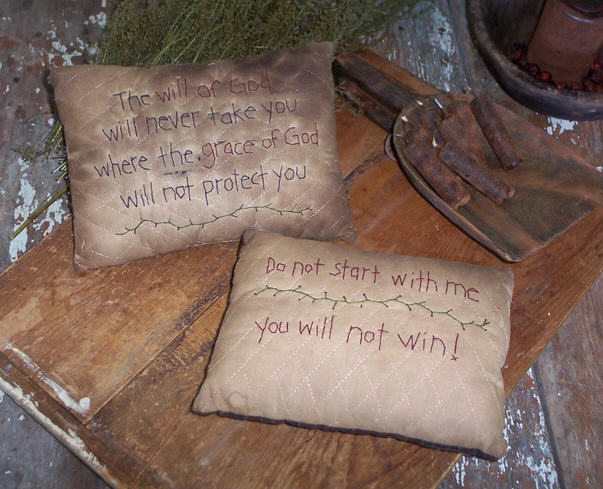 The will of God
will never take you
where the grace of God
will not protect you
Do not start with me
you will not win!